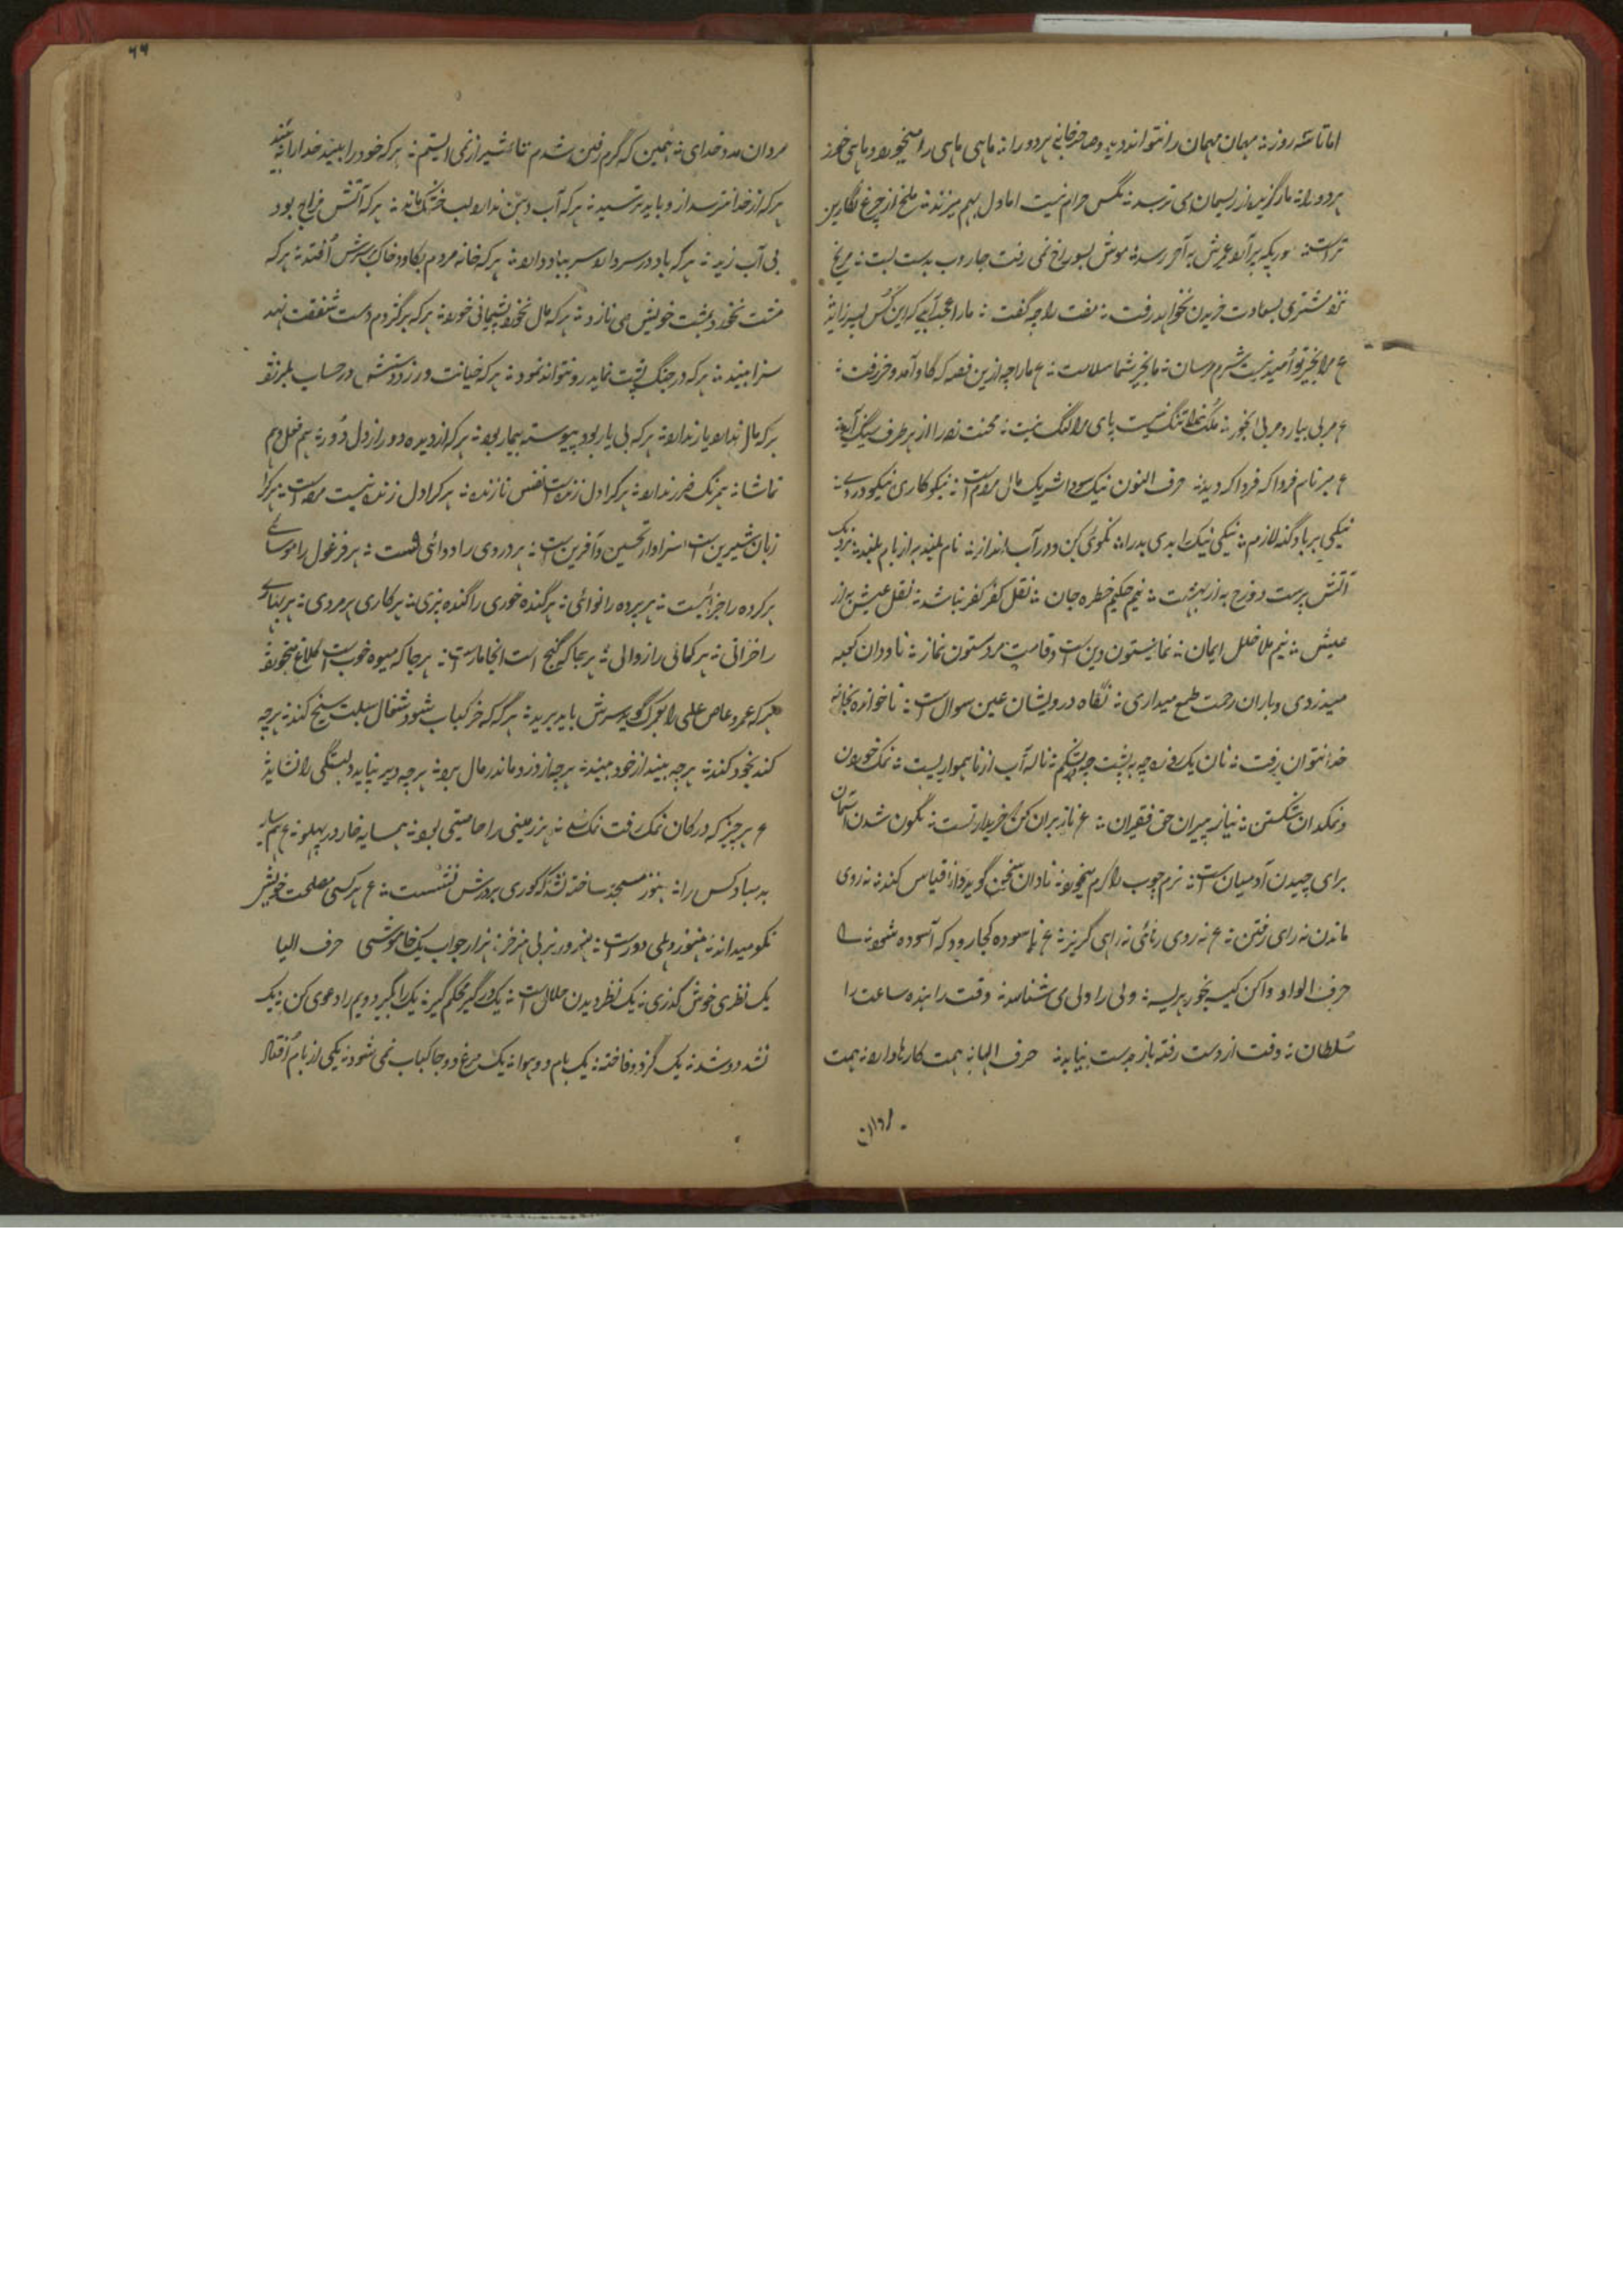 اما تا سه روز ؞ مهمان مهمان را نتواند دید و صاحبخانه هر دو را ؞ ماهی ماهی را میخورد و ماهی خور
هر دو را ؞ مار گزیده از ریسمان می ترسد ؞ مگس حرام نیست اما دل بهم میزند ؞ ملخ از چرغ نگارین
تر است ؞ مورچه پر آرد عمرش به آخر رسد ؞ موش بسوراخ نمی رفت جاروب بدست بست ؞ مریخ
مشتری بسعادت خریدن نخواهد رفت ؞ مفت را چه گفت ؞ ما را عجب آید که این کس پسر زاید
ع مرا بخیر تو امید نیست شر مرسان ؞ ما بخیر شما سلامت ؞ ع ما را چه ازین قصه که گاو آمد و خر رفت ؞
ع مربی بیار و مربی بخور ؞ ملک خدا تنگ نیست پای مرا لنگ نیست ؞ محنت زده را از هر طرف سنگ آید
ع مبر نام فردا که فردا که دید ؞ حرف النون نیک سودا شریک مال مردم است ؞ نیکو کاری نیکو
نیکی برباد گنه لازم ؞ نیکی نیک را بدی بد را ؞ نکوئی کن و در آب انداز ؞ نام بلند به از بام بلند ؞ نزدیک
آتش پرست دوزخ به از بهشت ؞ نیم حکیم خطره جان ؞ نقل کفر کفر نباشد ؞ نقل عیش به از
عیش ؞ نیم ملا خلل ایمان ؞ نماز ستون دین است و قامت مرد ستون نماز ؞ ناودان کعبه
میدزدی و باران رحمت طمع میداری ؞ نگاه درویشان عین سوال است ؞ ناخوانده بخانه
خدا نتوان رفت ؞ نان یک روزه چه بر پشت چه در شکم ؞ ناله آب از ناهمواریست ؞ نمک خوردن
و نمکدان شکستن ؞ نیاز پیران حق فقیران ؞ ع ناز بران کن که خریدار تست ؞ نگون شدن آسمان
برای چیدن آدمیان است ؞ نرم چوب را کرم میخورد ؞ نادان سخن گوید و دانا قیاس کند ؞ نه روی
ماندن نه رای رفتن ؞ ع نه روی رهائی نه راهی گریز ؞ ع ناسوده کجا رود که آسوده شود ؞
حرف الواو وا کن کیسه بخور هریسه ؞ ولی را ولی می شناسد ؞ وقت را بنده ساعت را
سلطان ؞ وقت از دست رفته باز بدست نیاید ؞ حرف الها ؞ همت کارها دارد ؞ همت
مردان
۶۶
مردان مدد خدای ؞ همین که گرم رفتن شدم تا شیراز نمی ایستم ؞ هر که خود را بیند خدا را نه بیند
هر که از خدا نترسد ازو باید ترسید ؞ هر که آب دهن ندارد لب خشک ماند ؞ هر که آتش مزاج بود
بی آب زید ؞ هر که باد در سر دارد سر بباد دارد ؞ هر که خانه مردم بکاود خاک بر سرش افتد ؞ هر که
مشت نخورد بمشت خویش می نازد ؞ هر که مال نخورد پشیمانی خورد ؞ هر که بر گژدم دست شفقت نهد
سزا بیند ؞ هر که در جنگ پشت نماید رو نتواند نمود ؞ هر که خیانت ورزد دستش در حساب بلرزد
هر که مال ندارد یار ندارد ؞ هر که بی یار بود پیوسته بیمار بود ؞ هر که از دیده دور از دل دور ؞ هم فعل و هم
تماشا ؞ هر که را دل زنده است نفس نازنده ؞ هر که را دل زنده نیست مرده است ؞ هر کرا
زبان شیرین است سزاوار تحسین و آفرین است ؞ هر دردی را دوائی هست ؞ هر فرعون را موسائی
هر کرده را جزائیست ؞ هر پرده را نوائی ؞ هر گنده خوری را گنده پزی ؞ هر کاری هر مردی ؞ هر بهاری
را خزانی ؞ هر کمالی را زوالی ؞ هر جا که گنج است آنجا مار است ؞ هر جا که میوه خوب است کلاغ میخورد
هر که عمرو عاص علی را بزرگ گوید سرش باید برید ؞ هر گه که خر کباب شود شغال سبلت سیخ کند ؞ هر چه
کند بخود کند ؞ هر چه بیند از خود بیند ؞ هر چه از دزد ماند رمال برد ؞ هر چه دیر نیاید دلبستگی را نشاید
ع هر چیز که در کان نمک رفت نمک شد ؞ هر زمینی را خاصیتی بود ؞ همسایه خار در پهلو ؞ ع همسایه
بد مباد کس را ؞ هنوز مسجد ساخته نشد که کوری بر درش نشست ؞ ع هر کسی مصلحت خویش
نکو میداند ؞ هنوز دهلی دور است ؞ هنرور نر بی هنر خر ؞ هزار جواب یک خاموشی حرف الیا
یک نظری خوش گذری ؞ یک نظر دیدن حلال است ؞ یک در گیر محکم گیر ؞ یک را بگیر دویم را دعوی کن ؞ یک
نشد دو شد ؞ یک گز و دو فاخته ؞ یک بام و دو هوا ؞ یک مرغ دو جا کباب نمی شود ؞ یکی از بام افتاد